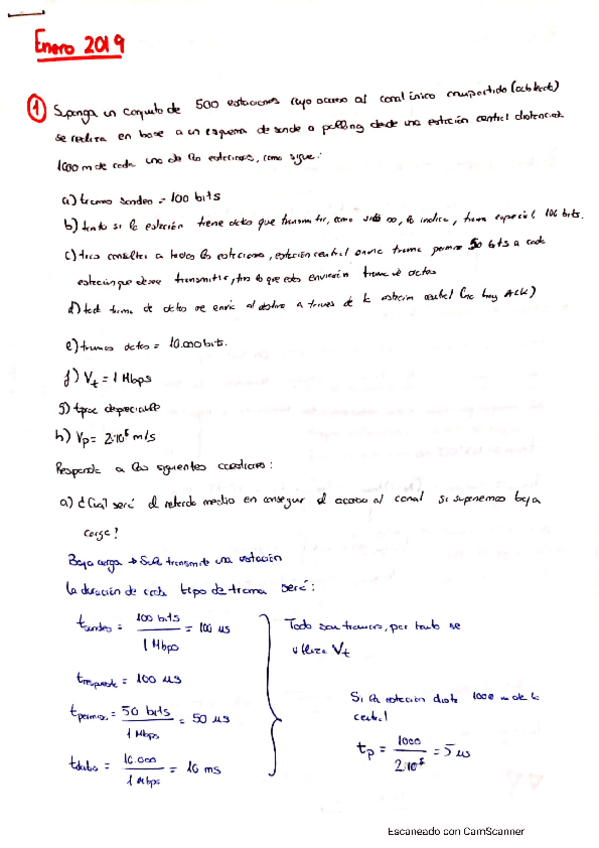 Enero 2019
① Suponga un conjunto de 500 estaciones cuyo acceso al canal único compartido (
se realiza en base a un esquema de sondeo o polling desde una estación central distanciada
1000 m de cada una de las estaciones, como sigue:
a) tramo sondeo = 100 bits
b) tanto si la estación tiene datos que transmitir, como si no, lo indica, trama especial 100 bits.
c) tras consultar a todas las estaciones, estación central envía trama permiso 50 bits a cada
estación que desee transmitir, tras lo que estas enviarán trama de datos
d) toda trama de datos se envía al destino a través de la estación central (no hay ACK)
e) tramas datos = 10.000 bits.
f) Vt = 1 Mbps
g) tproc despreciable
h) Vp = 2·10⁸ m/s
Responda a las siguientes cuestiones:
a) ¿Cuál será el retardo medio en conseguir el acceso al canal si suponemos baja
carga?
Baja carga → Solo transmite una estación
La duración de cada tipo de trama será:
tsondeo = 100 bits / 1 Mbps = 100 µs
trespuesta = 100 µs
tpermiso = 50 bits / 1 Mbps = 50 µs
tdatos = 10.000 / 1 Mbps = 10 ms
Todo son tramas, por tanto se
utiliza Vt
Si la estación dista 1000 m de la
central
tp = 1000 / 2·10⁸ = 5 µs
Escaneado con CamScanner